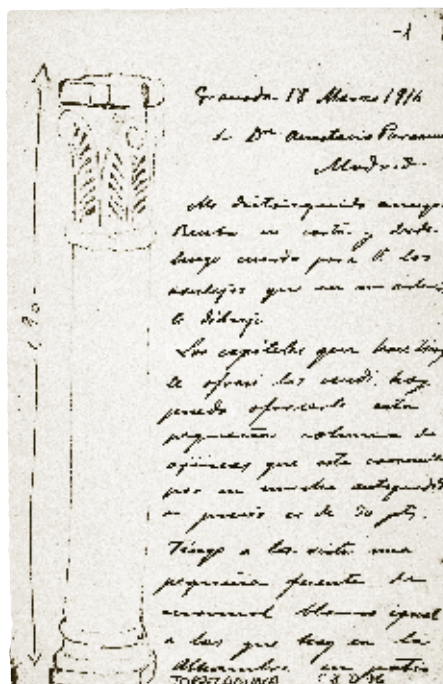 -1
Granada 18 Marzo 1916
Sr Dn Anastasio Paramo
Madrid.
Mi distinguido amigo
Recibo su carta y desde
luego cuento para V. los
azulejos que en mi anterior
le dibujé
Los capiteles que hace tiempo
le ofrecí los vendí. hoy
puedo ofrecerle esta
pequeña columna de
que esta
por su mucha antigüedad
su precio es de 50 pts.
Tengo a la vista una
pequeña fuente de
marmol blanco igual
a las que hay en la
Alhambra un patio
190